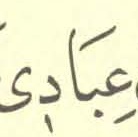 عِبَادِى